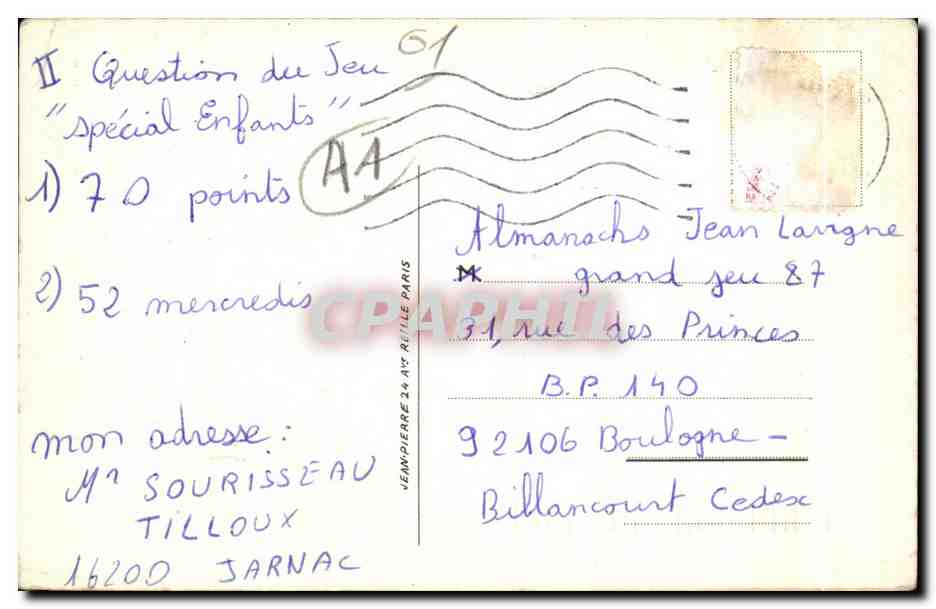 61
II Question du Jeu
"spécial Enfants"
A1
1) 70 points
2) 52 mercredis
mon adresse :
Mr SOURISSEAU
TILLOUX
16200 JARNAC
JEAN-PIERRE 24 AVE REILLE PARIS
Almanachs Jean Lavigne
grand jeu 87
31, rue des Princes
B.P. 140
92106 Boulogne-
Billancourt Cedex
CPAPHIL